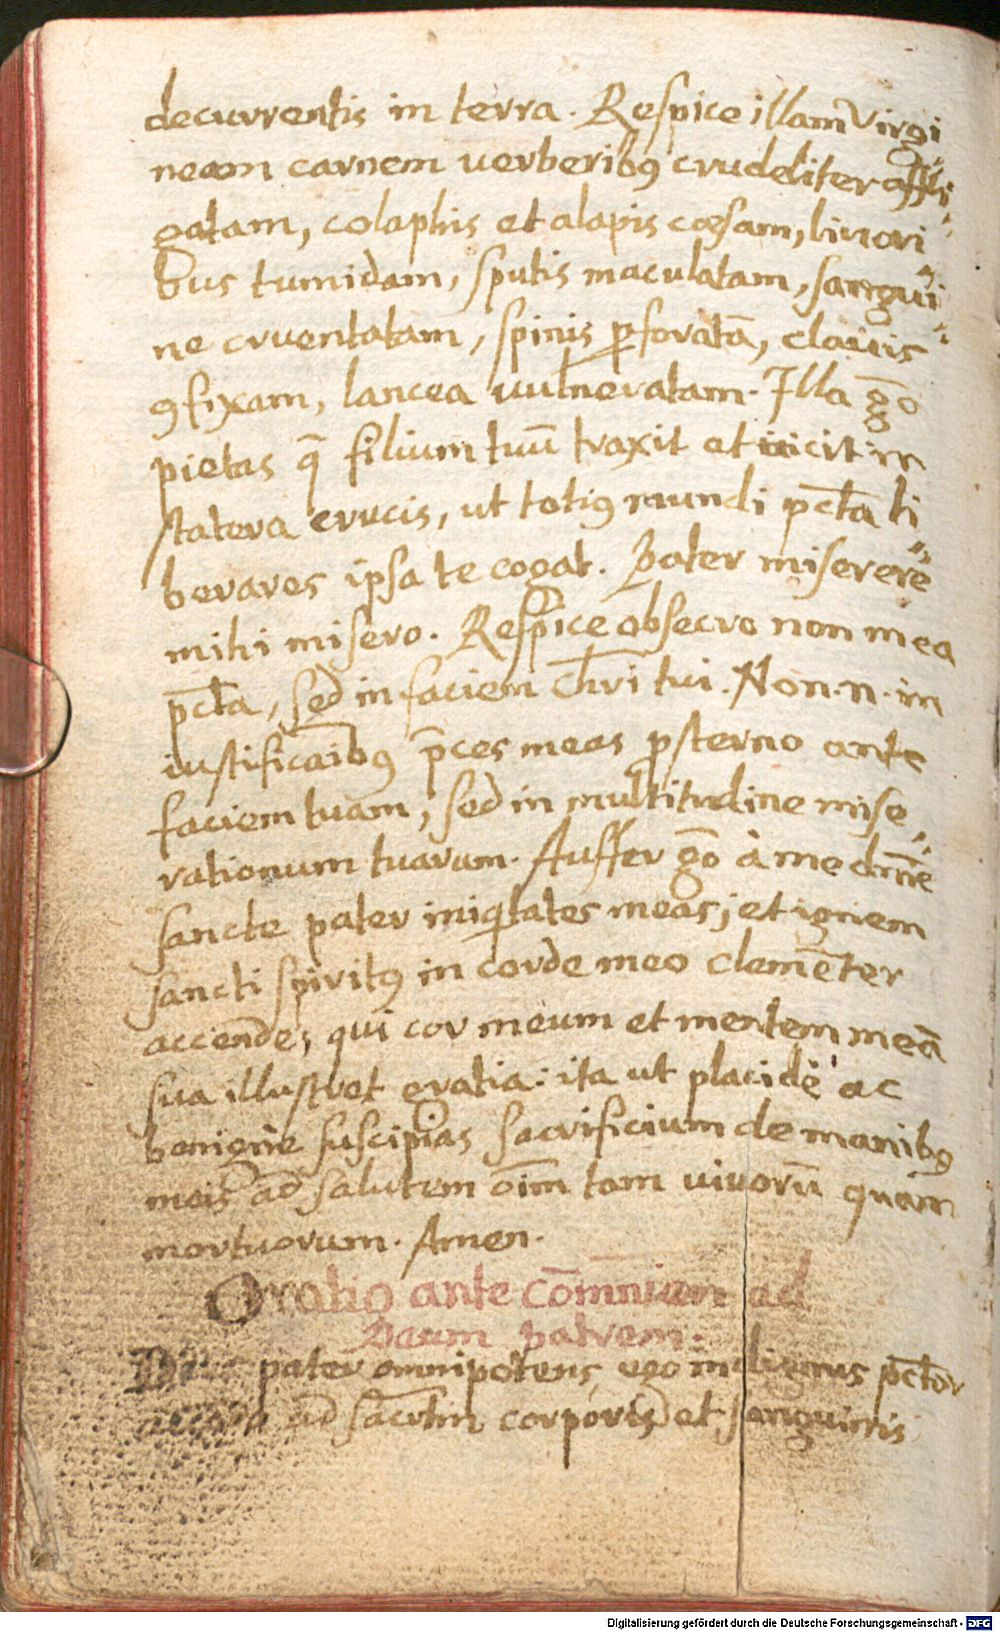 decurrentis in terra. Respice illam Virgi
neam carnem verberibꝰ crudeliter affli
gatam, colaphis et alapis cæsam, livori
bus tumidam, sputis maculatam, sangui
ne cruentatam, spinis ꝑforatā, clavis
ꝯfixam, lancea vulneratam. Illa gͦ
pietas q̄ filium tuū traxit et iiicit in
statera crucis, ut totiꝰ mundi pctā li
berares ipsa te cogat. Pater miserere
mihi misero. Respice obsecro non mea
pctā, sed in faciem Chri tui. Non .n. in
iustificaībꝰ p̄ces meas ꝓsterno ante
faciem tuam, sed in multitudine mise
rationum tuarum. Auffer gō à me dmne
sancte pater iniqtates meas, et ignem
sancti spiritꝰ in corde meo clemēter
accende, qui cor meum et mentem meā
sua illustret gratia: ita ut placidè ac
benigne suscipias sacrificium de manibꝰ
meis ad salutem oīm tam vivorū quam
mortuorum. Amen.
Oratio ante cōmnīem ad
Deum patrem.
pater omnipotens, ego indignus pctor
accedo ad sacrtm corporis et sanguinis
Digitalisierung gefördert durch die Deutsche Forschungsgemeinschaft - DFG